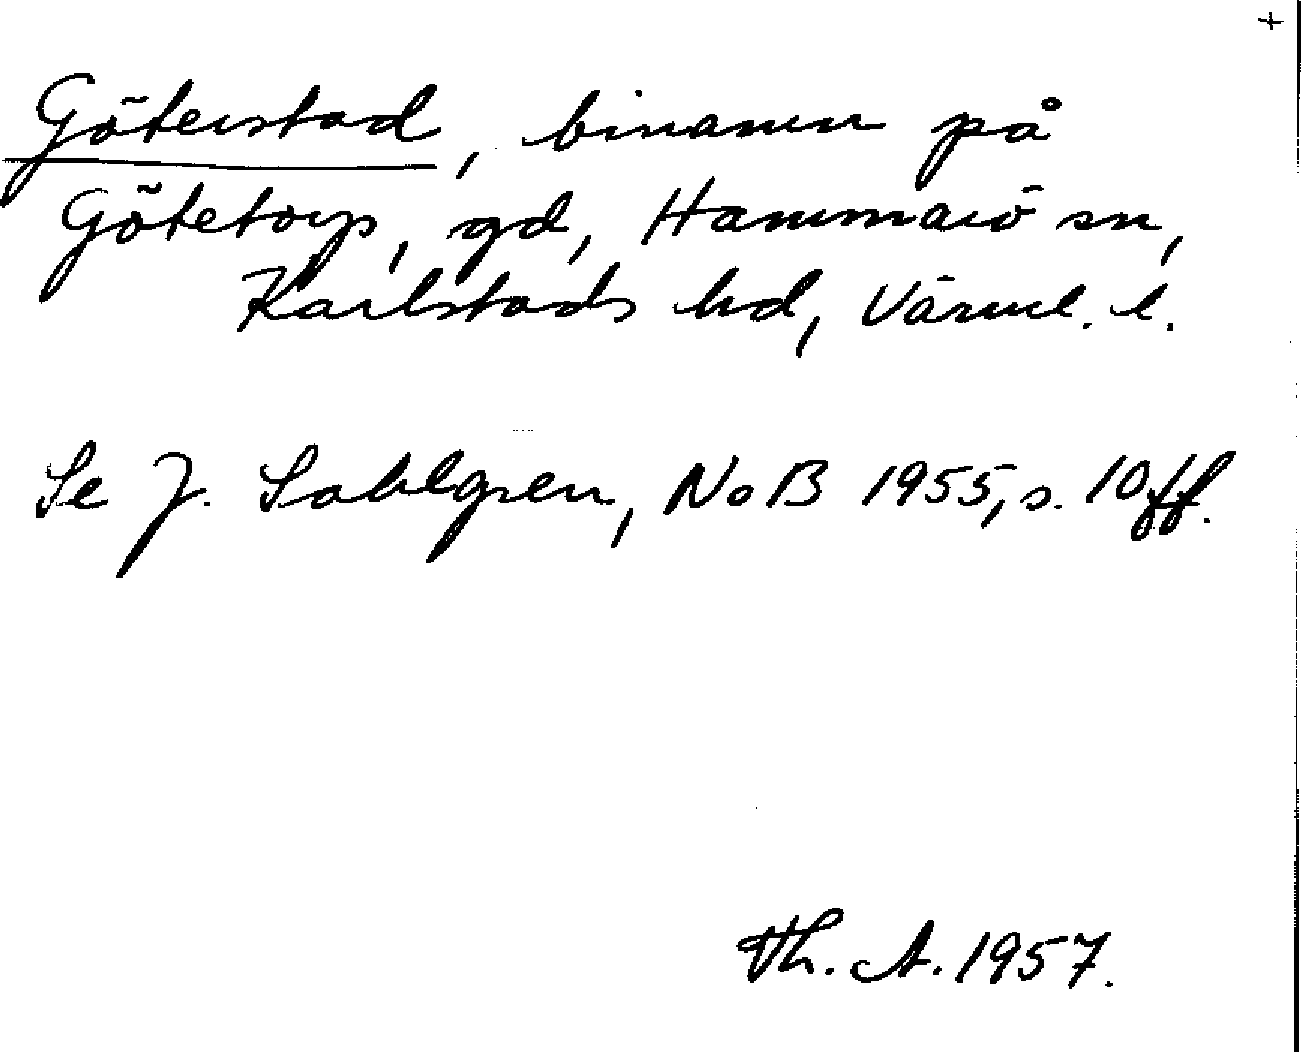 +
Göterstad, binamn på
Götetorp, gd, Hammarö sn,
Karlstads hd, Värml. l.
Se J. Sahlgren, NoB 1955, s. 10 ff.
Th. A. 1957.